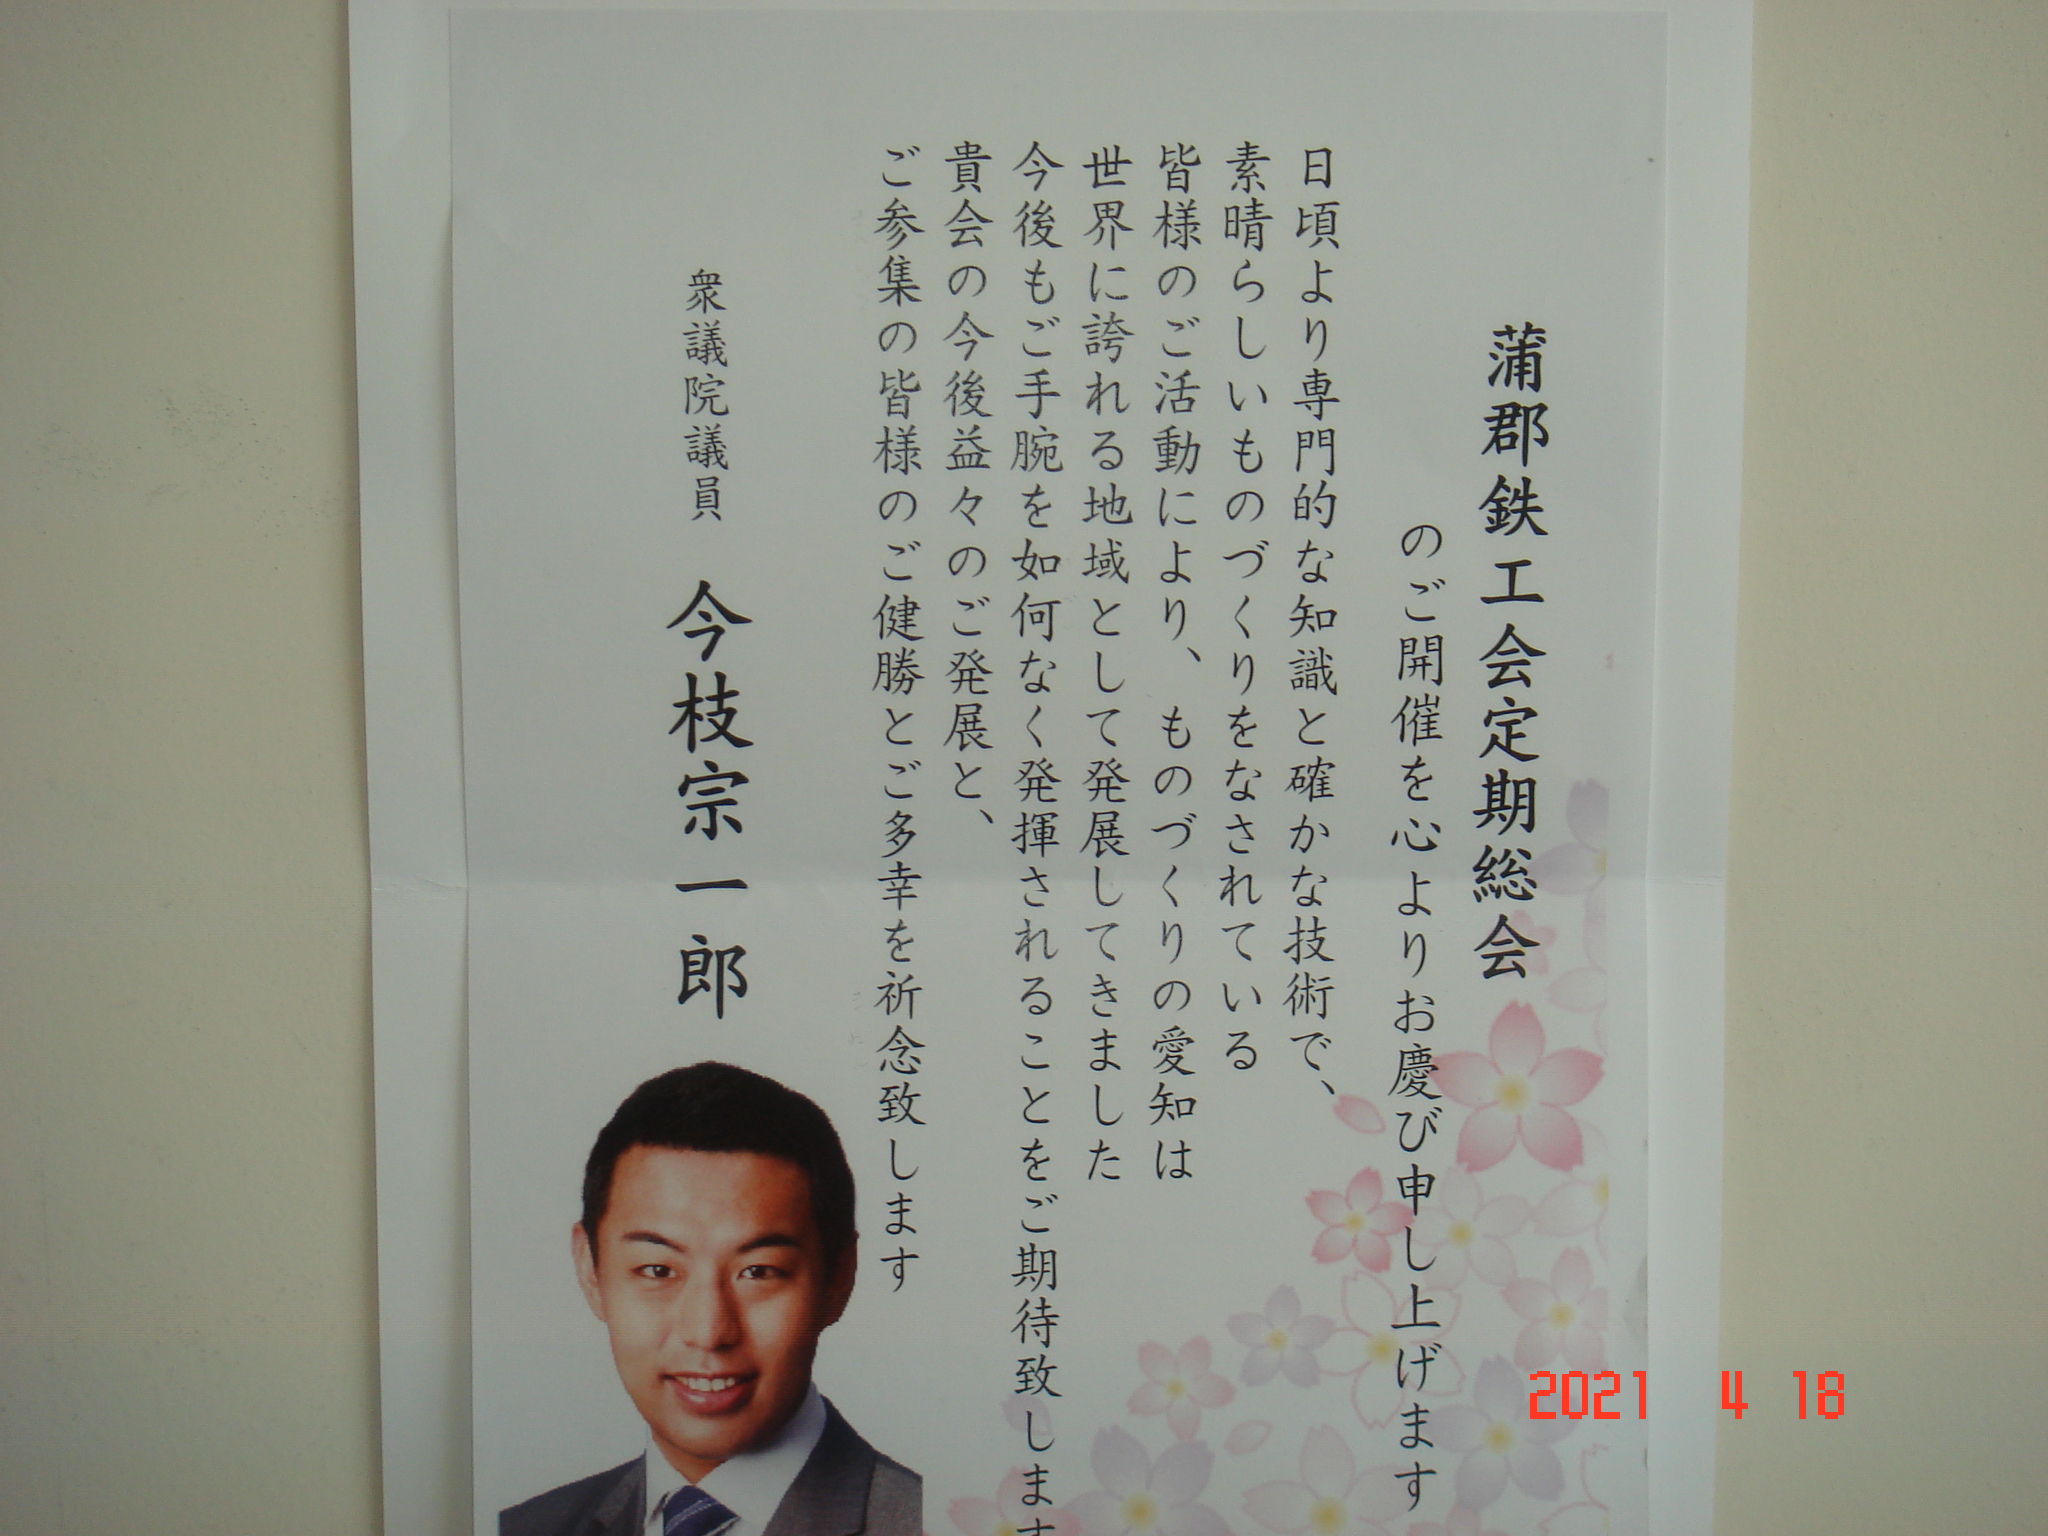 蒲郡鉄工会定期総会
のご開催を心よりお慶び申し上げます
日頃より専門的な知識と確かな技術で、
素晴らしいものづくりをなされている
皆様のご活動により、ものづくりの愛知は
世界に誇れる地域として発展してきました
今後もご手腕を如何なく発揮されることをご期待致します
貴会の今後益々のご発展と、
ご参集の皆様のご健勝とご多幸を祈念致します
衆議院議員 今枝宗一郎
2021 4 18